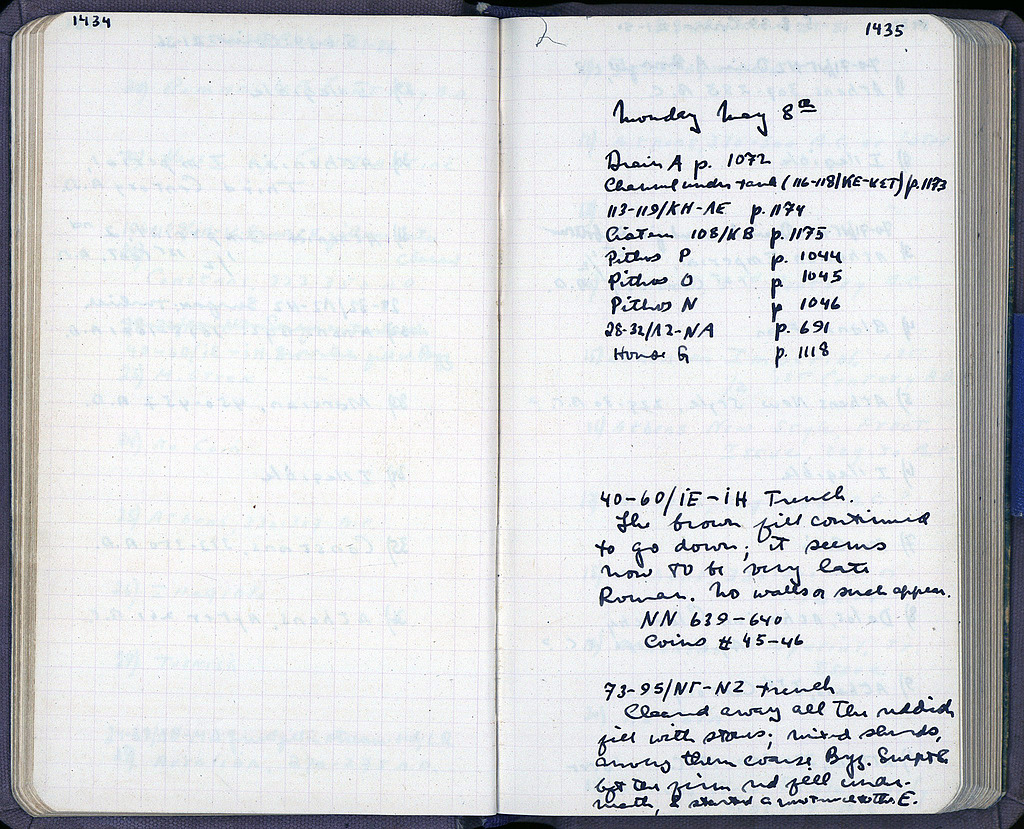 1434
2
1435
Monday May 8th
Drain A p. 1072
Channel under tank (116-118/ΚΕ-ΚΣΤ) p. 1173
113-119/ΚΗ-ΛΕ p. 1174
Cistern 108/ΚΒ p. 1175
Pithos P p. 1044
Pithos O p. 1045
Pithos N p. 1046
28-32/ΛΖ-ΝΑ p. 691
House G p. 1118
40-60/ΙΕ-ΙΗ Trench.
The brown fill continued
to go down; it seems
now to be very late
Roman. No walls or such appear.
NN 639-640
Coins # 45-46
73-95/ΝΓ-ΝΖ trench
Cleaned away all the reddish
fill with stones; mixed sherds,
among them coarse Byz. Swept
the firm red fill under-
neath, & started a new to the E.